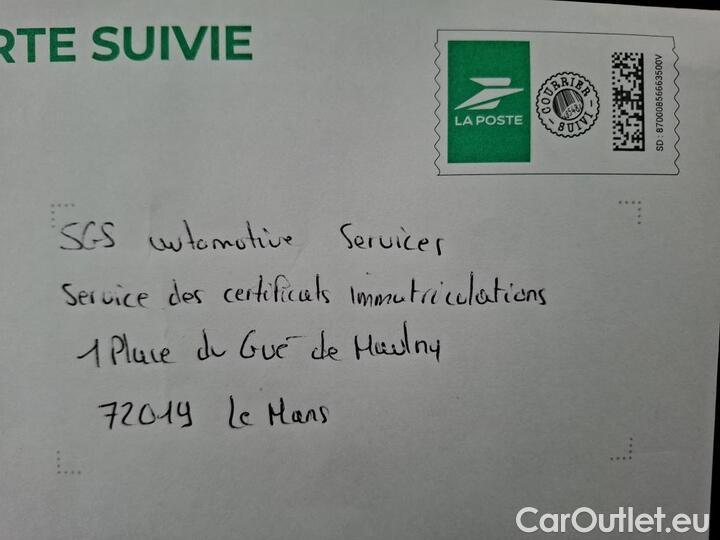 RTE SUIVIE
LA POSTE
COURRIER SUIVI
SD : 87000856663500V
SGS automotive Services
Service des certificats immatriculations
1 Place du Gué de Maulny
72019 Le Mans
CarOutlet.eu